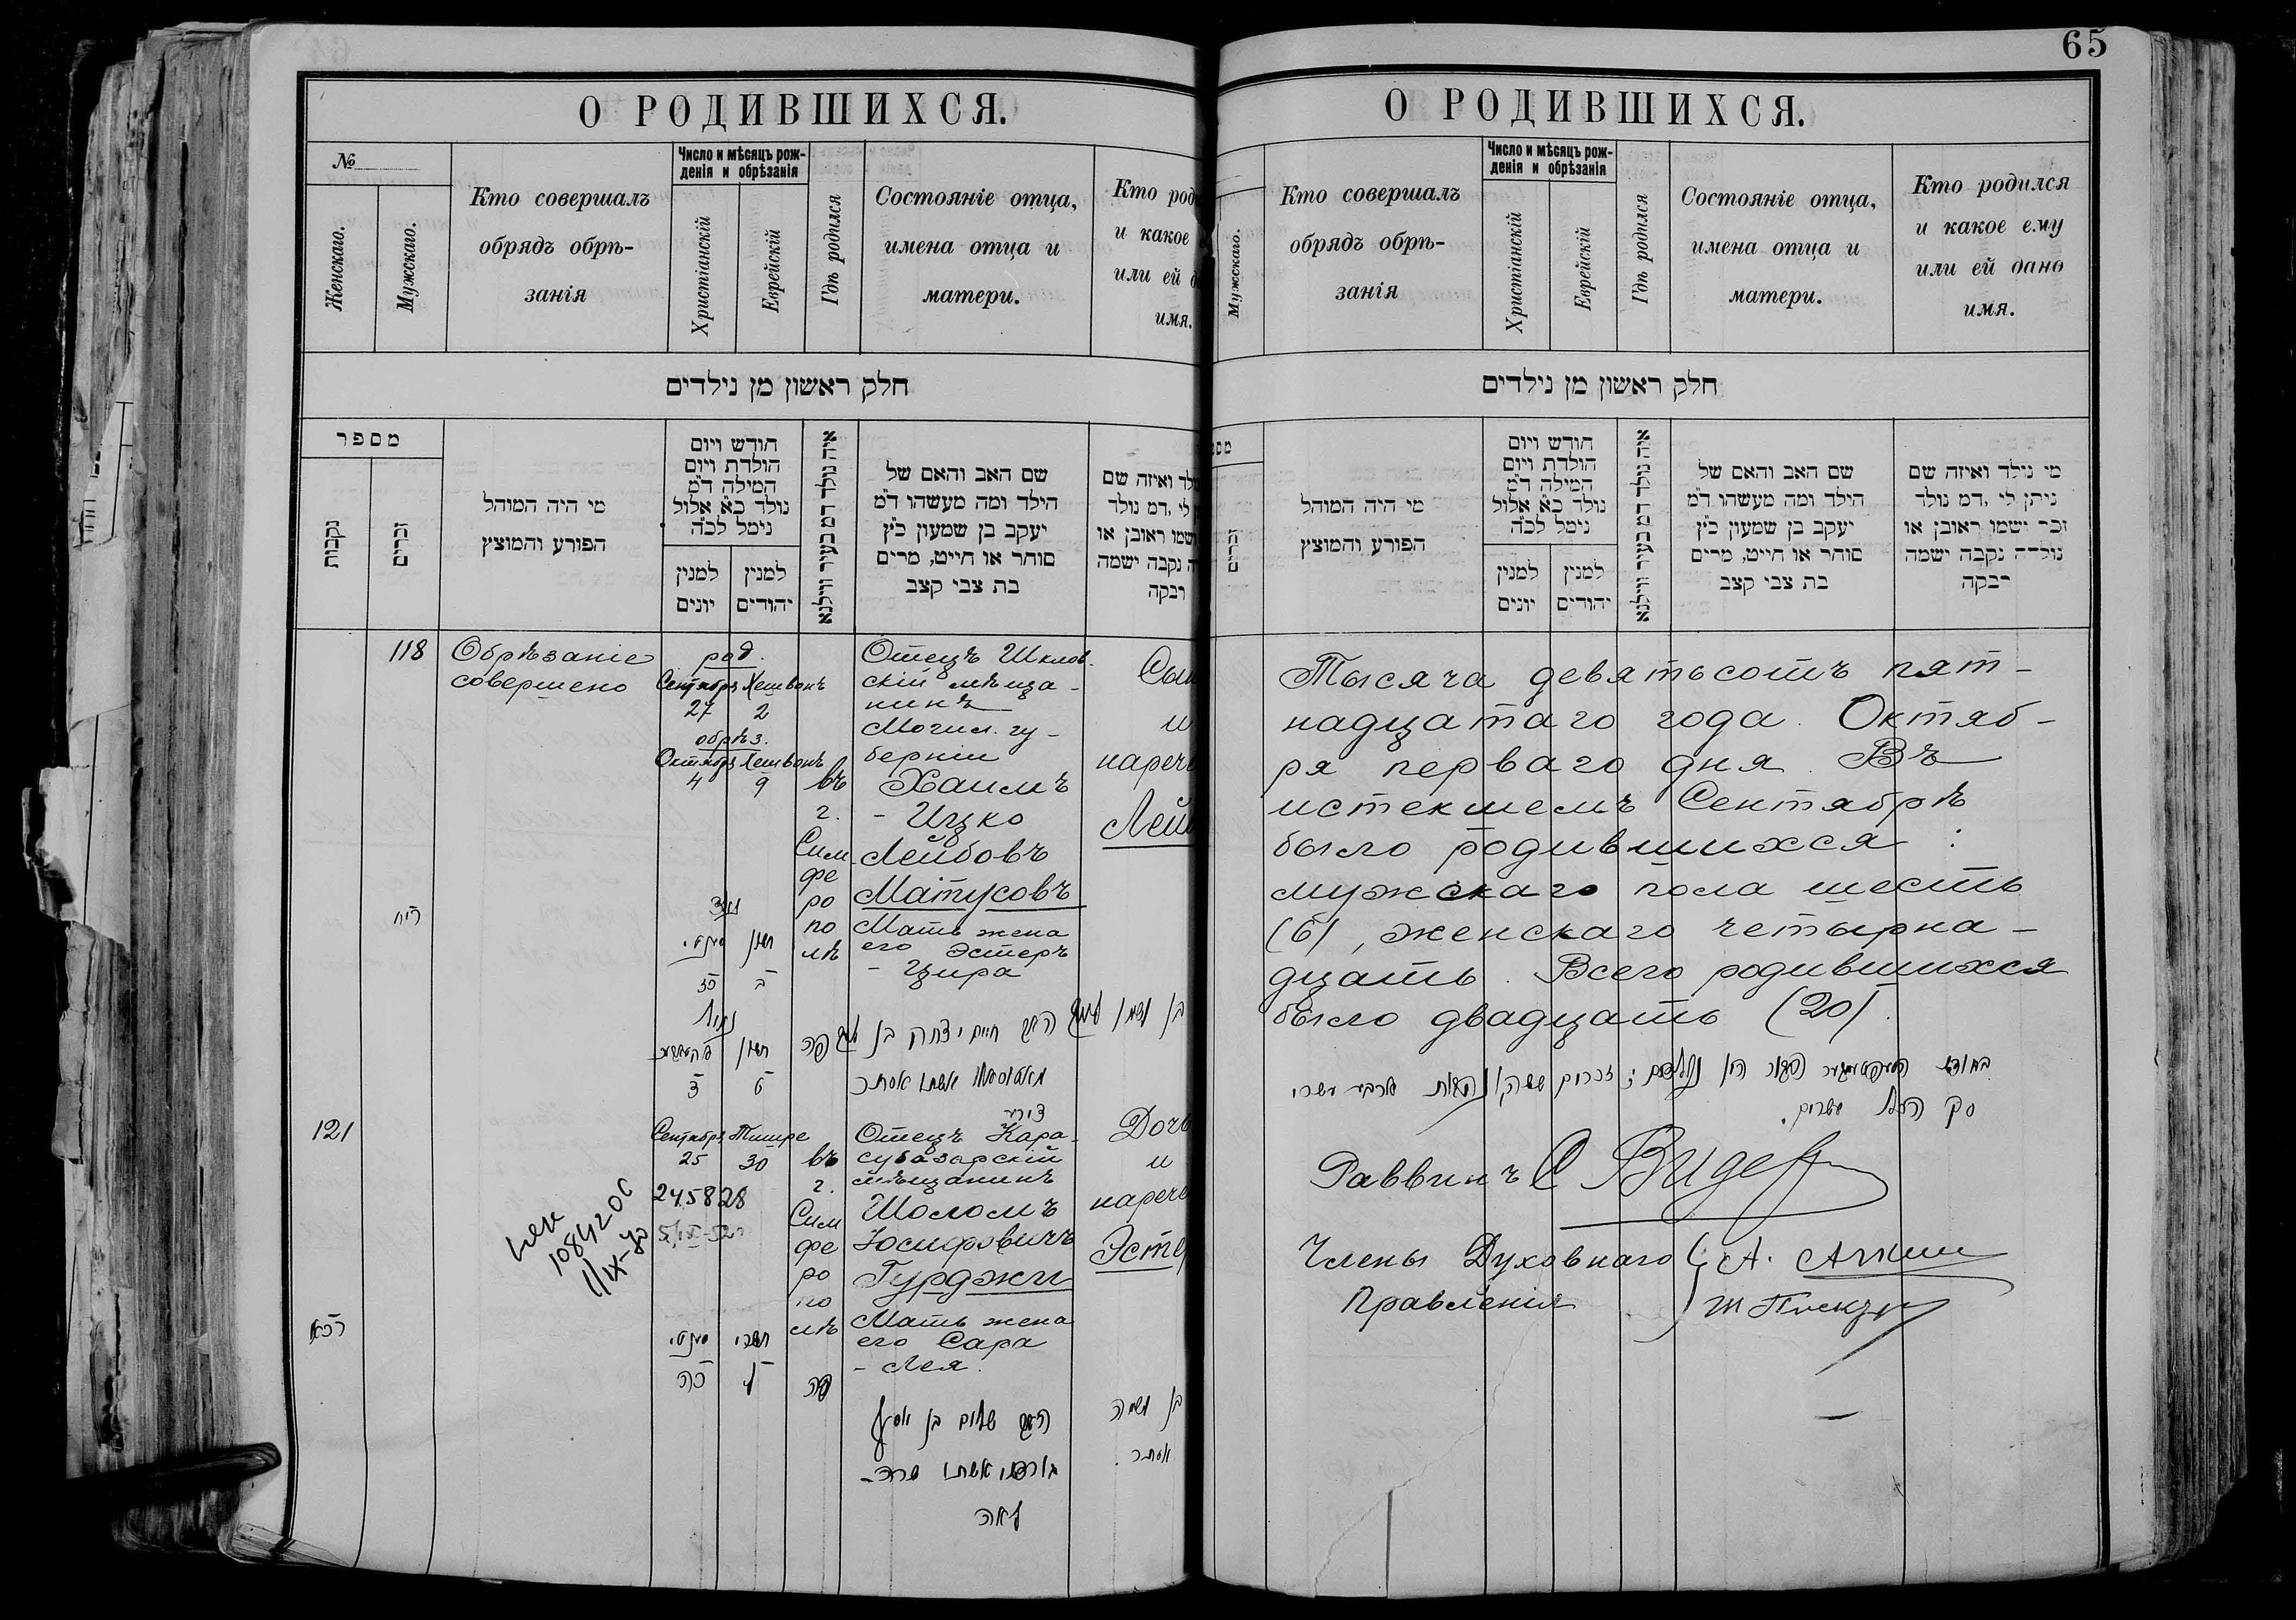 65
О РОДИВШИХСЯ.
№
Женскаго.
Мужскаго.
Кто совершалъ
обрядъ обрѣ-
занія
Число и мѣсяцъ рож-
денія и обрѣзанія
Христіанскій
Еврейскій
Гдѣ родился
Состояніе отца,
имена отца и
матери.
Кто род
и какое
или ей д
имя.
חלק ראשון מן נילדים
מספר
נקבות
זכרים
מי היה המוהל
הפורע והמוצץ
חודש ויום
הולדת ויום
המילה ד״מ
נולד כ״א אלול
נימל לכ״ה
למנין
יונים
למנין
יהודים
איה נולד דמ בעיר ווילנא
שם האב והאם של
הילד ומה מעשהו ד״מ
יעקב בן שמעון כ״ץ
סוחר או חייט, מרים
בת צבי קצב
ילד ואיזה שם
לי ,דמ נולד
ושמו ראובן או
ה נקבה ישמה
רבקה
118
Обрѣзаніе
совершено
род.
Сентябрь Хешвонъ
27 2
обрѣз.
Октябрь Хешвонъ
4 9
въ
г.
Сим
фе
ро
по
лѣ
Отецъ Шклов-
скій мѣща-
нинъ
Могил. гу-
берніи
Хаимъ
- Ицко
Лейбовъ
Матусовъ
Мать жена
его Эстеръ
- Цира
Сын
и
нарече
Лейб
קיח
חשון
ב כז
חשון
ט ד
פה
חיים יצחק בן
אשתו אסתר
צירע
121
Сентябрь Тишре
25 30
245828
108420 С
1/IX-
въ
г.
Сим
фе
ро
по
лѣ
Отецъ Кара-
субазарскій
мѣщанинъ
Шоломъ
Іосифовичъ
Гурджи
Мать жена
его Сара
- Лея.
Дочь
и
нарече
Эстер
קכא
תשרי
ל כה
פה
שלום בן יוסף
גורדזשי אשתו שרה-
לאה
בן נשמה
אסתר.
О РОДИВШИХСЯ.
Мужскаго.
Кто совершалъ
обрядъ обрѣ-
занія
Число и мѣсяцъ рож-
денія и обрѣзанія
Христіанскій
Еврейскій
Гдѣ родился
Состояніе отца,
имена отца и
матери.
Кто родился
и какое ему
или ей дано
имя.
חלק ראשון מן נילדים
מספ
זכרים
מי היה המוהל
הפורע והמוצץ
חודש ויום
הולדת ויום
המילה ד״מ
נולד כ״א אלול
נימל לכ״ה
למנין
יונים
למנין
יהודים
איה נולד דמ בעיר ווילנא
שם האב והאם של
הילד ומה מעשהו ד״מ
יעקב בן שמעון כ״ץ
סוחר או חייט, מרים
בת צבי קצב
מי נילד ואיזה שם
ניתן לי ,דמ נולד
זכר ישמו ראובן או
נולדה נקבה ישמה
רבקה
Тысяча девятьсотъ пят-
надцатаго года. Октяб-
ря перваго дня. Въ
истекшемъ Сентябрѣ
было родившихся :
мужскаго пола шесть
(6), женскаго четырна-
дцать. Всего родившихся
было двадцать (20).
בחודש סעפטעמבער העבר היו נולדים: זכרים ששה ונקבות ארבע עשרי
סך הכל עשרים.
Раввинъ С Видер
Члены Духовнаго
Правленія
А.